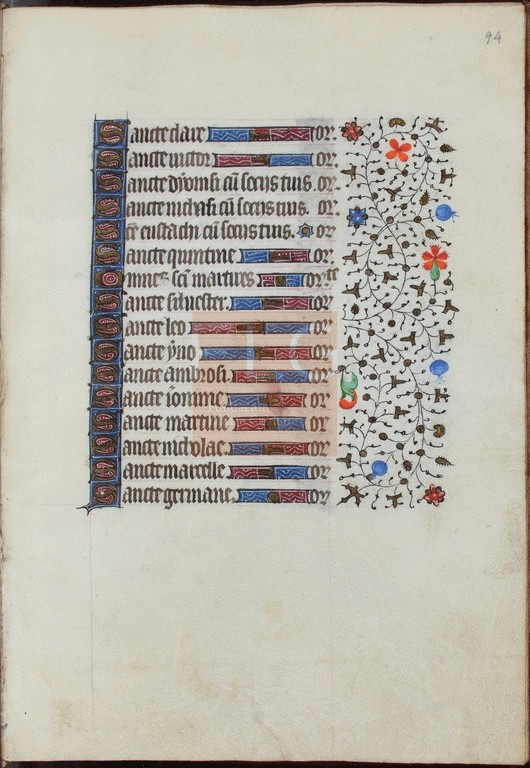 94
Sancte clare or
Sancte victor or
Sancte dyonisi cū socijs tuis. or
Sancte nichasi cū socijs tuis. or
Sce eustachi cū socijs tuis. or
Sancte quintine or
Omnes sc̄i martires orte
Sancte siluester or
Sancte leo or
Sancte yuo or
Sancte ambrosi or
Sancte ieronime or
Sancte martine or
Sancte nicholae or
Sancte marcelle or
Sancte germane or